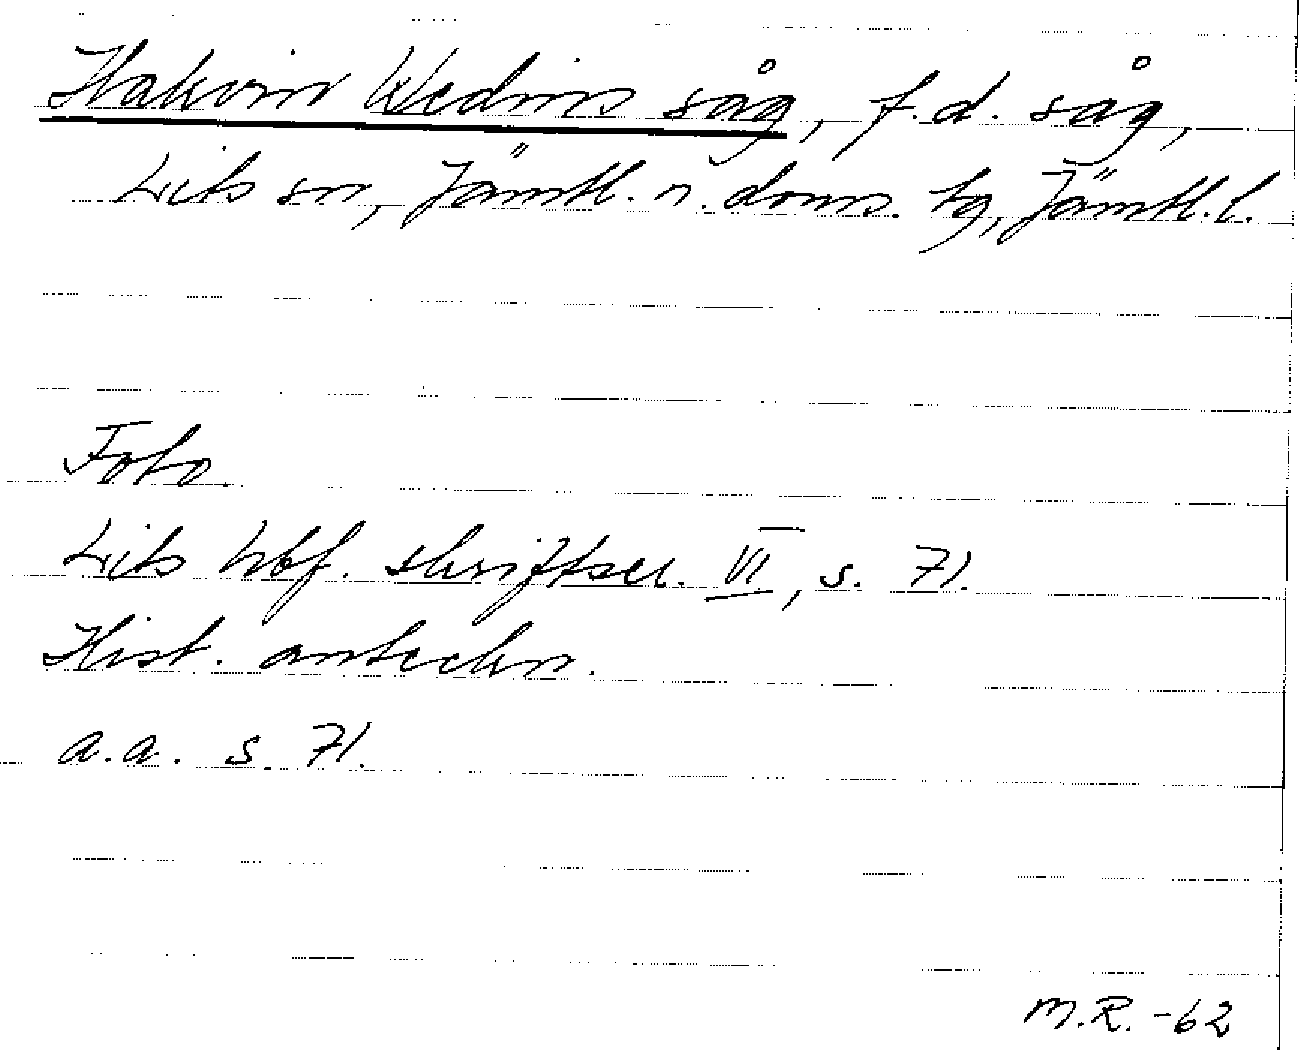 Hakvin Wedins såg, f.d. såg,
Lits sn, Jämtl. n. doms. tg, Jämtl. l.
Foto.
Lits hbf. skriftser. VI, s. 71.
Hist. anteckn.
a.a. s. 71.
M.R. -62